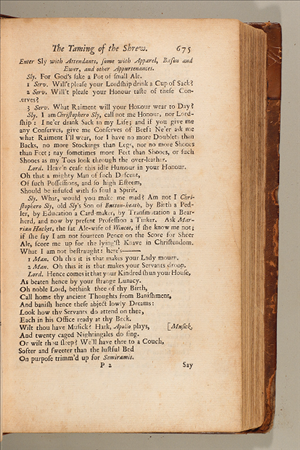 The Taming of the Shrew. 675
Enter Sly with Attendants, some with Apparel, Bason and
Ewer, and other Appurtenances.
Sly. For God's sake a Pot of small Ale.
1 Serv. Will't please your Lordship drink a Cup of Sack?
2 Serv. Will't please your Honour taste of these Con-
serves?
3 Serv. What Raiment will your Honour wear to Day?
Sly. I am Christophero Sly, call not me Honour, nor Lord-
ship: I ne'er drank Sack in my Life; and if you give me
any Conserves, give me Conserves of Beef: Ne'er ask me
what Raiment I'll wear, for I have no more Doublets than
Backs, no more Stockings than Legs, nor no more Shooes
than Feet; nay sometimes more Feet than Shooes, or such
Shooes as my Toes look through the over-leather.
Lord. Heav'n cease this idle Humour in your Honour.
Oh that a mighty Man of such Descent,
Of such Possessions, and so high Esteem,
Should be infused with so foul a Spirit.
Sly. What, would you make me mad? Am not I Chri-
stophero Sly, old Sly's Son of Burton-heath, by Birth a Ped-
ler, by Education a Card-maker, by Transmutation a Bear-
herd, and now by present Profession a Tinker. Ask Mar-
rian Hacket, the fat Ale-wife of Wincot, if she know me not;
if she say I am not fourteen Pence on the Score for Sheer
Ale, score me up for the lying'st Knave in Christendom.
What I am not bestraught: here's———
1 Man. Oh this it is that makes your Lady mourn.
2 Man. Oh this it is that makes your Servants droop.
Lord. Hence comes it that your Kindred shun your House,
As beaten hence by your strange Lunacy.
Oh noble Lord, bethink thee of thy Birth,
Call home thy ancient Thoughts from Banishment,
And banish hence these abject lowly Dreams:
Look how thy Servants do attend on thee,
Each in his Office ready at thy Beck.
Wilt thou have Musick? Hark, Apollo plays, [Musick.
And twenty caged Nightingales do sing.
Or wilt thou sleep? We'll have thee to a Couch,
Softer and sweeter than the lustful Bed
On purpose trimm'd up for Semiramis.
P 2 Say